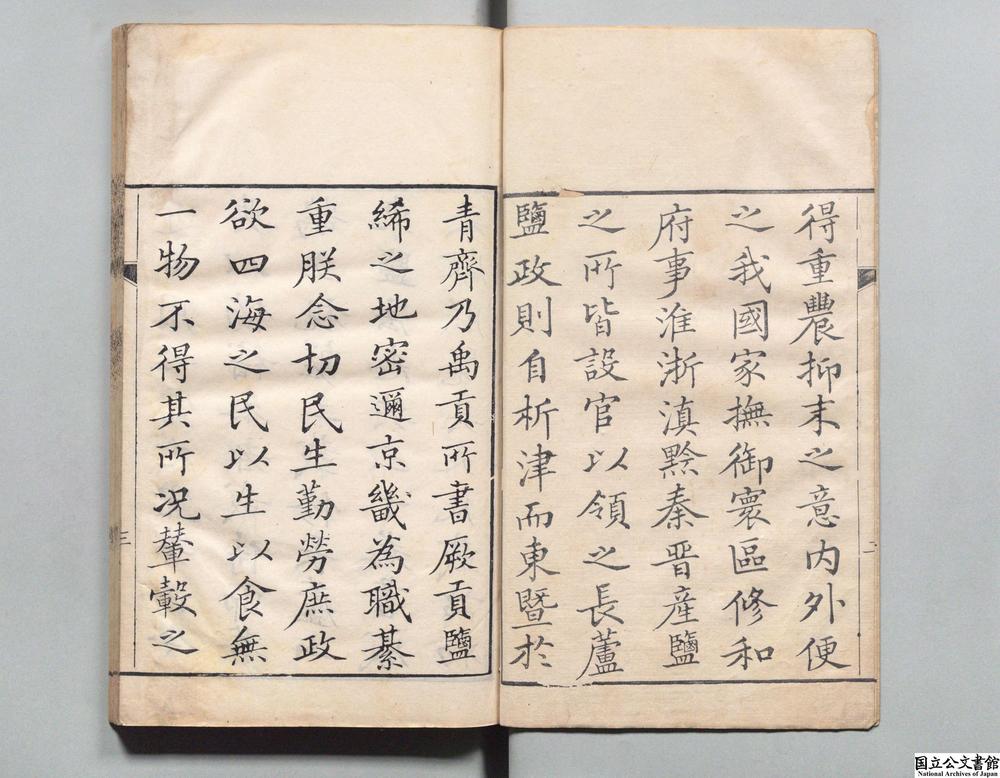 得重農抑末之意内外便
之我國家撫御寰區修和
府事淮浙滇黔秦晋産鹽
之所皆設官以領之長蘆
鹽政則自析津而東暨於
青齊乃禹貢所書厥貢鹽
絺之地密邇京畿為職綦
重朕念切民生勤勞庶政
欲四海之民以生以食無
一物不得其所况輦轂之
二
三
国立公文書館
National Archives of Japan